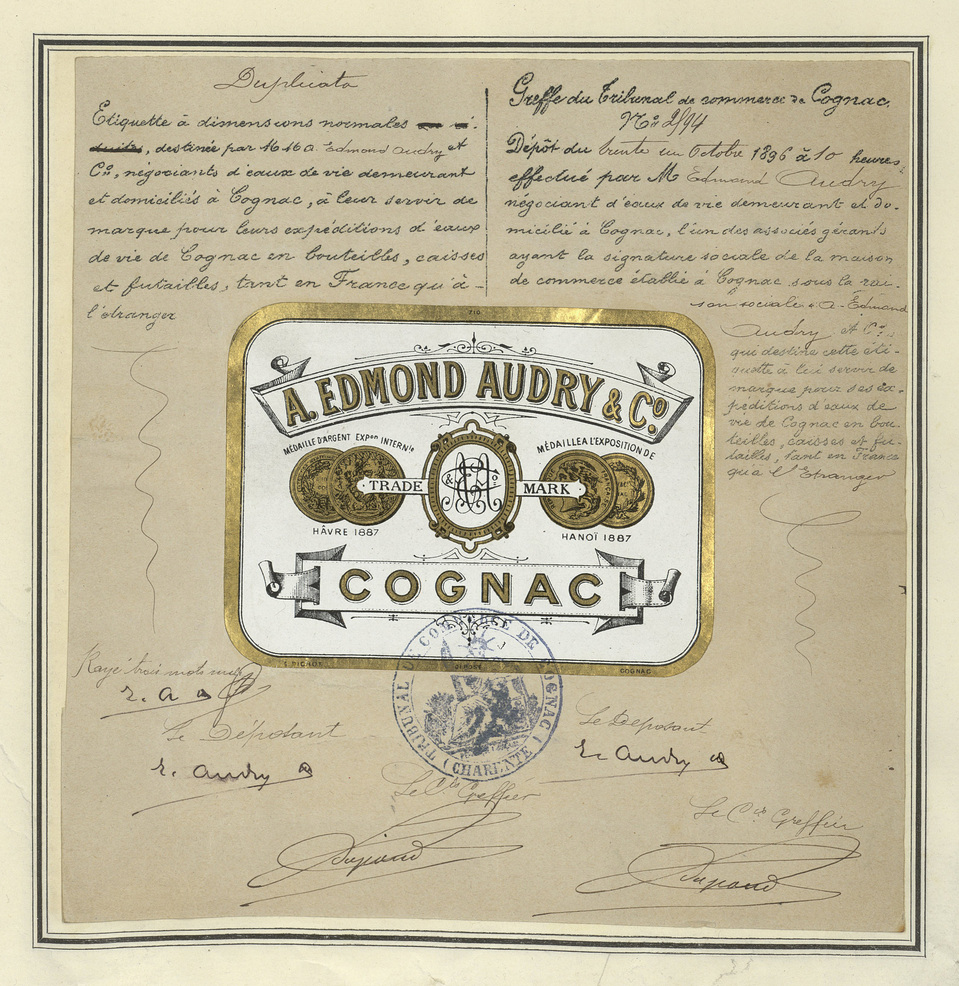 Duplicata
Etiquette à dimensions normales
, destinée par MM A. Edmond Audry et
Cie, négociants d'eaux de vie demeurant
et domiciliés à Cognac, à leur servir de
marque pour leurs expéditions d'eaux
de vie de Cognac en bouteilles, caisses
et futailles, tant en France qu'à -
l'étranger
Rayé trois mots nuls
E. A
Le Déposant
E. Audry
Le Cis Greffier
Greffe du Tribunal de commerce de Cognac.
No 2194
Dépôt du trente un Octobre 1896 à 10 heures,
effectué par M Edmond Audry
négociant d'eaux de vie demeurant et do-
micilié à Cognac, l'un des associés gérants
ayant la signature sociale de la maison
de commerce établie à Cognac sous la rai-
son sociale: A. Edmond
Audry et Cie.
qui destine cette éti-
quette à lui servir de
marque pour ses ex-
péditions d'eaux de
vie de Cognac en bou-
teilles, caisses et fu-
tailles, tant en France
qu'à l'Etranger
Le Déposant
E. Audry
Le Cis Greffier
710
A. EDMOND AUDRY & Co.
MÉDAILLE D'ARGENT EXPon INTERNle
MÉDAILLE A L'EXPOSITION DE
TRADE MARK
& Co
HÂVRE 1887
HANOÏ 1887
COGNAC
DÉPOSÉ
COGNAC
TRIBUNAL DE COMMERCE DE COGNAC
(CHARENTE)